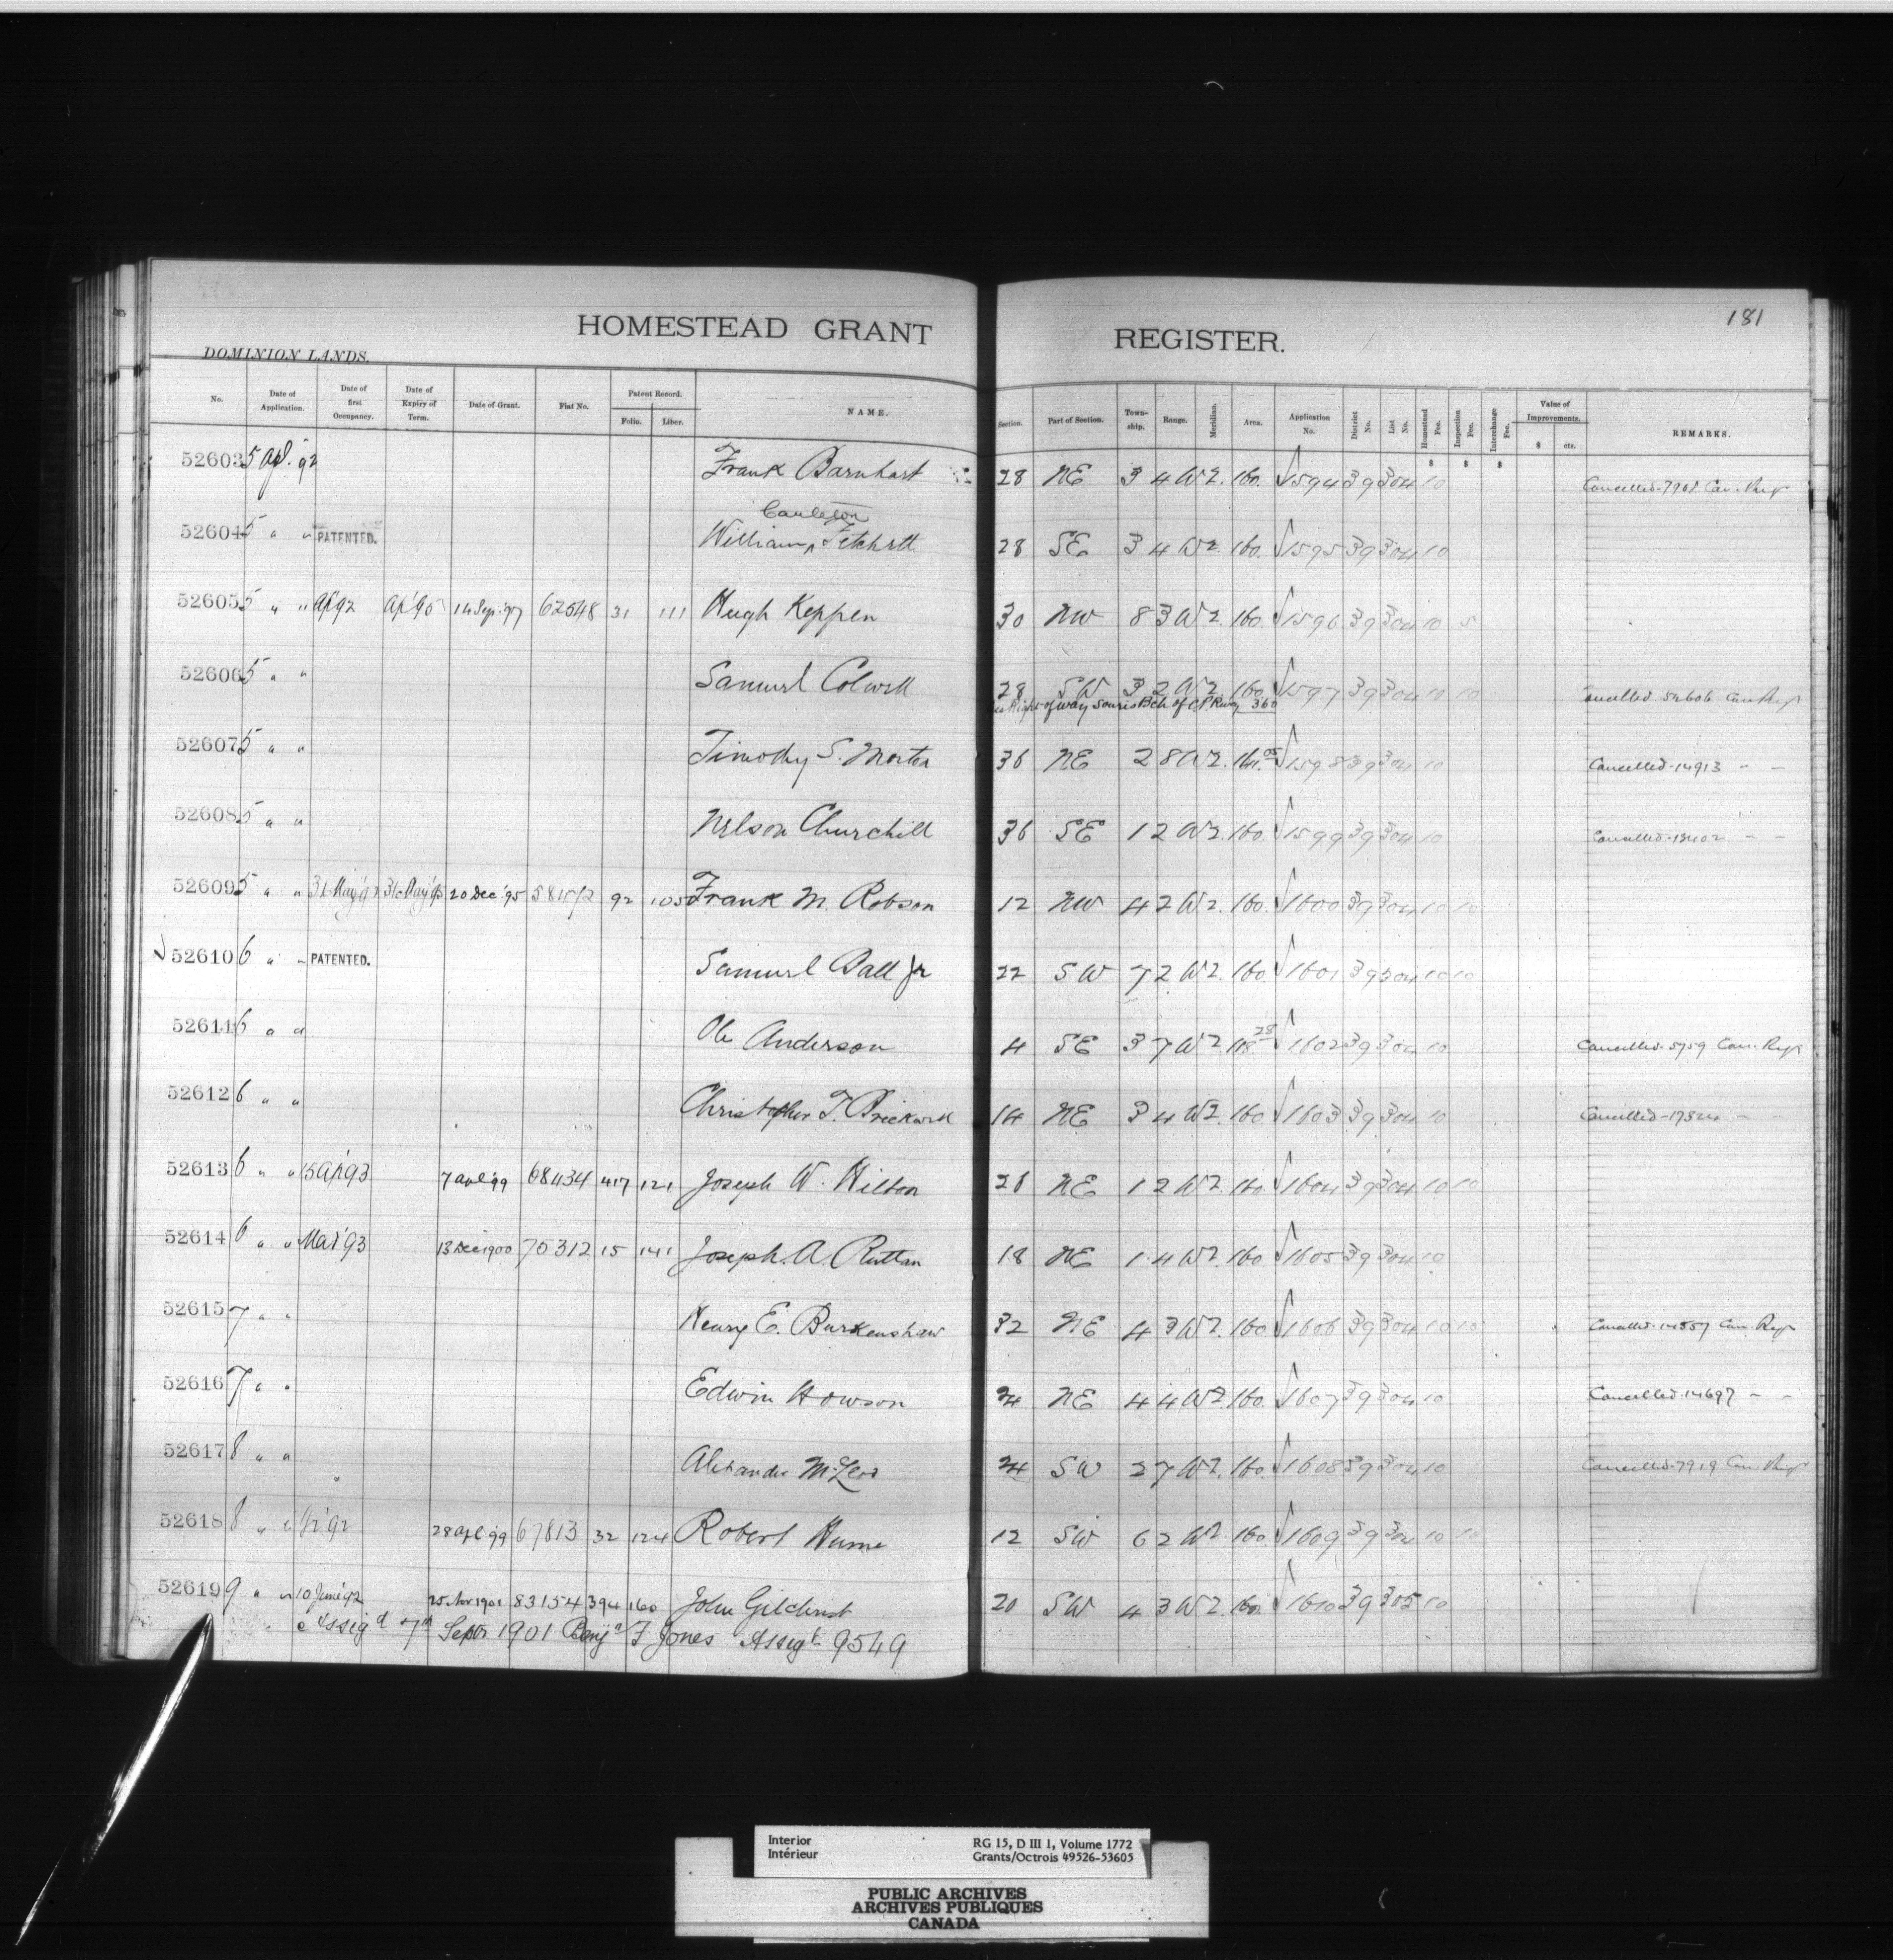 181
HOMESTEAD GRANT REGISTER.
DOMINION LANDS.
No. Date of Application. Date of first Occupancy. Date of Expiry of Term. Date of Grant. Fiat No. Patent Record. Folio. Liber. NAME. Section. Part of Section. Town-ship. Range. Meridian. Area. Application No. District No. List No. Homestead Fee. Inspection Fee. Interchange Fee. Value of Improvements. $ cts. REMARKS.
$ $ $
52603 5 Apl. '92 Frank Barnhart 28 NE 3 4 W2. 160. 1594 39 304 10 Cancelled-7908 Can. Regr
Carleton
52604 5 " " PATENTED. William 28 SE 3 4 W2. 160. 1595 39 304 10
52605 5 " " Ap'92 Ap'95 14 Sep. '97 62548 31 111 Hugh Keppen 30 NW 8 3 W2. 160. 1596 39 304 10 5
52606 5 " " Samuel Colwell 28 SW 3 2 W2. 160. 1597 39 304 10 10 Cancelled 52606 Can Regr
Right-of-way Souris Bch of C P Rway 3.60
52607 5 " " Timothy S. Morton 36 NE 2 8 W2. 161.05 1598 39 304 10 Cancelled-14913 " "
52608 5 " " Nelson Churchill 36 SE 1 2 W2. 160. 1599 39 304 10 Cancelled-13402 " "
52609 5 " " 31 May '92 31 May '95 20 Dec '95 58152 92 105 Frank M. Robson 12 NW 4 2 W2. 160. 1600 39 304 10 10
52610 6 " " PATENTED. Samuel Ball Jr 22 SW 7 2 W2. 160. 1601 39 304 10 10
52611 6 " " Ole Anderson 4 SE 3 7 W2 118.28 1602 39 304 10 Cancelled-5759 Can. Regr
52612 6 " " Christopher T. 14 NE 3 4 W2. 160. 1603 39 304 10 Cancelled-17324 " "
52613 6 " " 15 Ap'93 7 '99 68434 417 121 Joseph W. Wilson 28 NE 1 2 W2. 160. 1604 39 304 10 10
52614 6 " " Mar '93 13 Dec 1900 75312 15 141 Joseph. A. Ruttan 18 NE 1 4 W2. 160. 1605 39 304 10
52615 7 " " Henry E. Burkenshaw 32 NE 4 3 W2. 160. 1606 39 304 10 10 Cancelled-14557 Can. Regr
52616 7 " " Edwin Howson 24 NE 4 4 W2. 160. 1607 39 304 10 Cancelled-14697 " "
52617 8 " " Alexander McLeod 24 SW 2 7 W2. 160. 1608 39 304 10 Cancelled-7919 Can. Regr
52618 8 " " '92 28 Apl '99 67813 32 124 Robert Hume 12 SW 6 2 W2. 160. 1609 39 304 10 10
52619 9 " " 10 June '92 25 Nov 1901 83154 394 160 John Gilchrist 20 SW 4 3 W2. 160. 1610 39 305 10
Assigd 7th Septr 1901 Benjn F Jones Assigt. 9549
Interior
Intérieur
RG 15, D III 1, Volume 1772
Grants/Octrois 49526-53605
PUBLIC ARCHIVES
ARCHIVES PUBLIQUES
CANADA